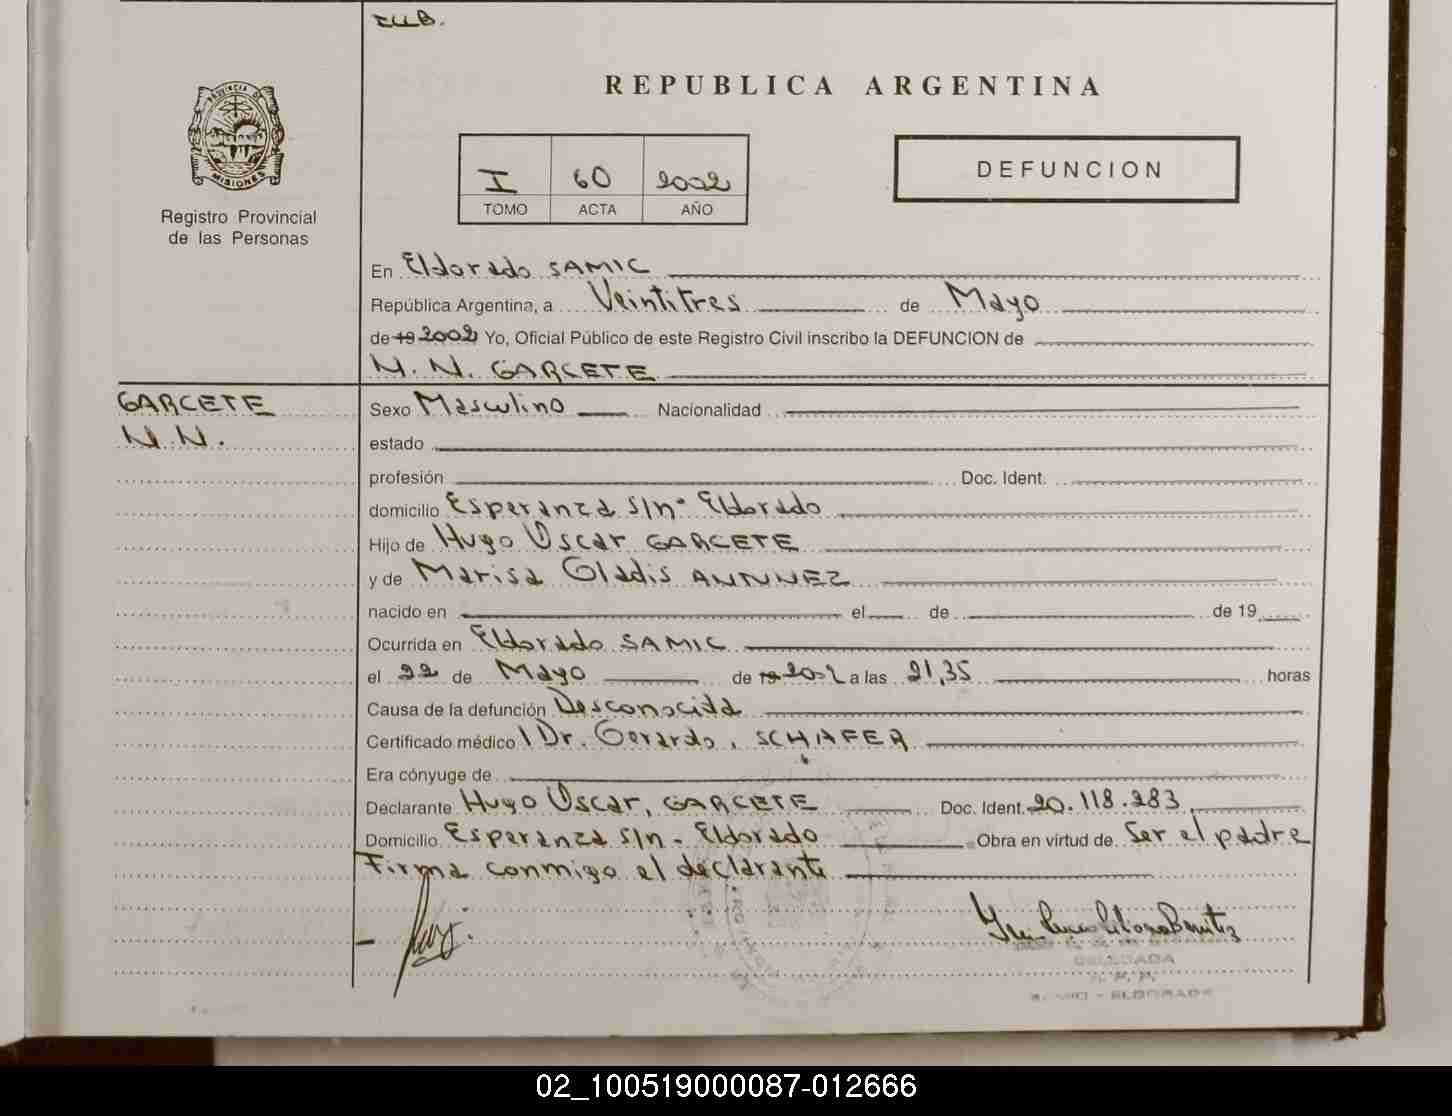 REPUBLICA ARGENTINA
PROVINCIA DE
MISIONES
Registro Provincial
de las Personas
I 60 2002
TOMO ACTA AÑO
DEFUNCION
En Eldorado SAMIC
República Argentina, a Veintitres de Mayo
de 19 2002 Yo, Oficial Público de este Registro Civil inscribo la DEFUNCION de
N.N. GARCETE
GARCETE
N.N.
Sexo Masculino Nacionalidad
estado
profesión Doc. Ident.
domicilio Esperanza S/nº Eldorado
Hijo de Hugo Oscar GARCETE
y de Marisa Gladis
nacido en el de de 19
Ocurrida en Eldorado SAMIC
el 22 de Mayo de 19 2002 a las 21,35 horas
Causa de la defunción Desconocida
Certificado médico Dr. Gerardo, SCHAFER
Era cónyuge de
Declarante Hugo Oscar, GARCETE Doc. Ident. 20.118.283
Domicilio Esperanza S/n - Eldorado Obra en virtud de Ser el padre
Firma conmigo el declarante
DELEGADA
ELDORADO
02_100519000087-012666